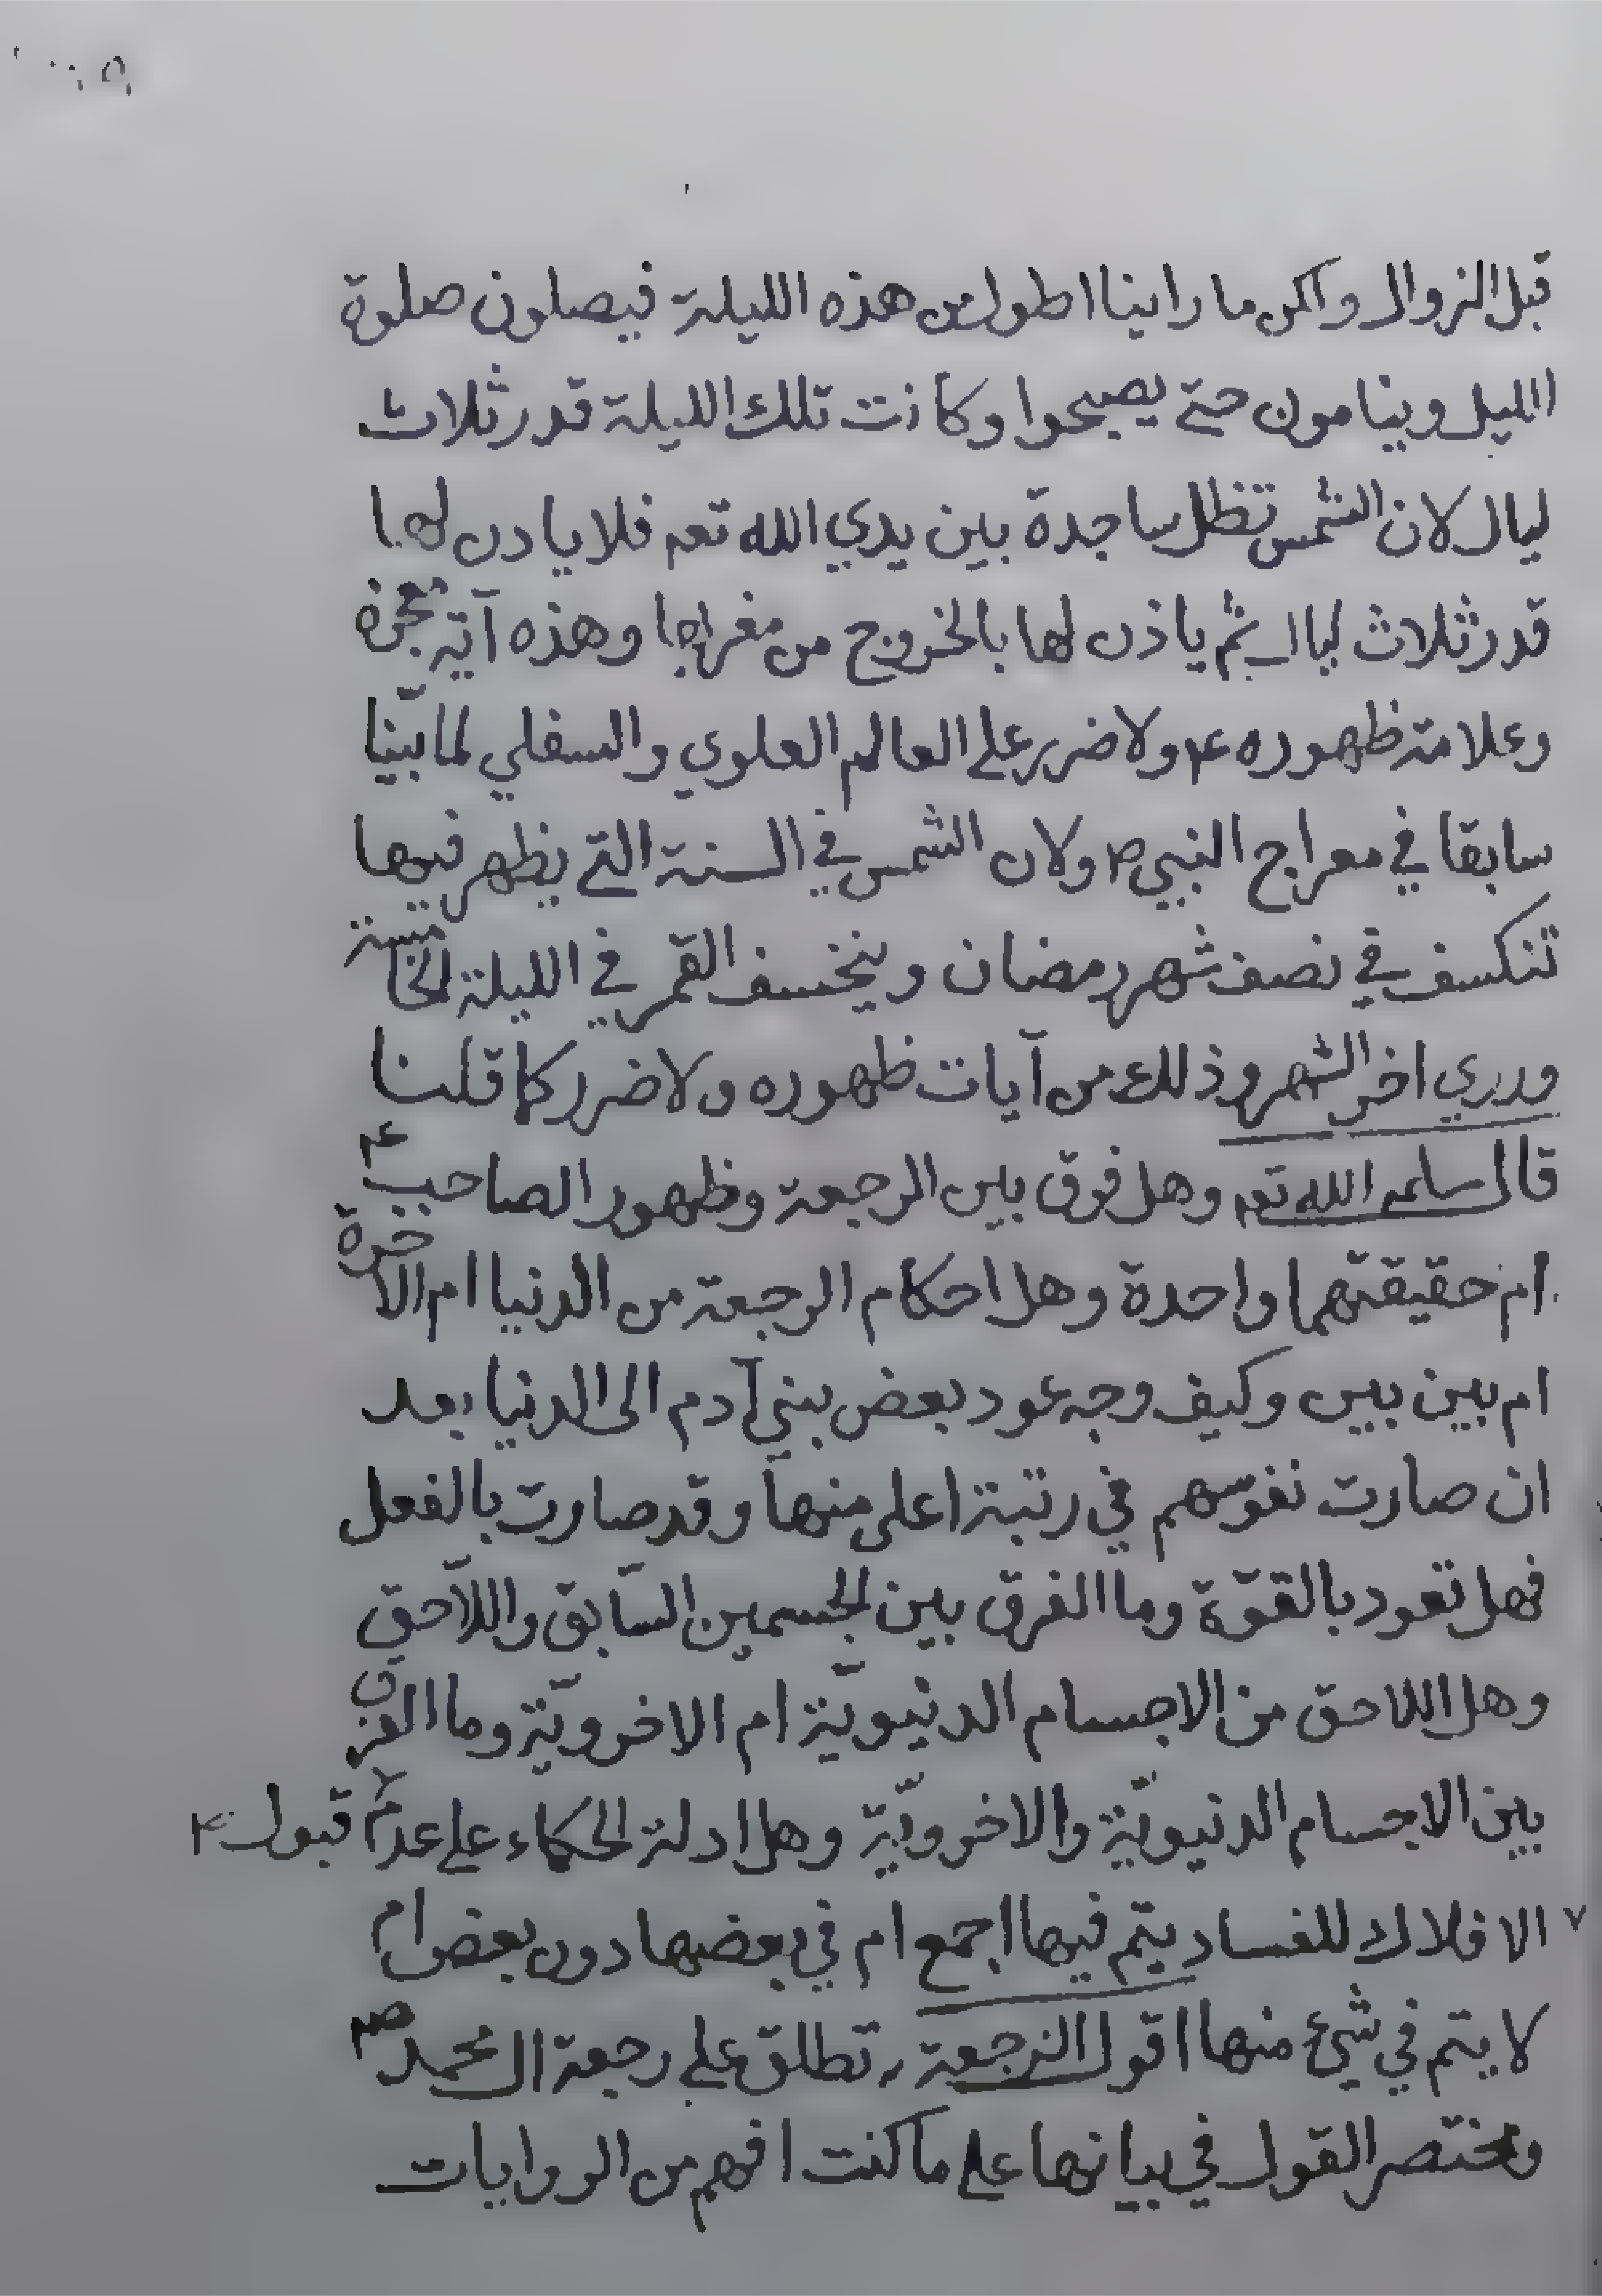 قبل الزوال ولكن ما راينا اطول من هذه الليلة فيصلون صلوة
الليل وينامون حتى يصبحوا وكانت تلك الليلة قدر ثلاث
ليال لان الشمس تظل ساجدة بين يدي الله تعم فلا ياذن لها
قدر ثلاث ليال ثم ياذن لها بالخروج من مغربها وهذه آية معجزة
وعلامة ظهوره ع ولا ضرر على العالم العلوي والسفلي لما بيّنا
سابقا في معراج النبي ص ولان الشمس في السنة التي يظهر فيها
تنكسف في نصف شهر رمضان وينخسف القمر في الليلة الخامسة
وروي اخر الشهر وذلك من آيات ظهوره ولا ضرر كما قلنا
قال سلمه الله تعم وهل فرق بين الرجعة وظهور الصاحب ع
ام حقيقتهما واحدة وهل احكام الرجعة من الدنيا ام الاخرة
ام بين بين وكيف وجه عود بعض بني آدم الى الدنيا بعد
ان صارت نفوسهم في رتبة اعلى منها وقد صارت بالفعل
فهل تعود بالقوّة وما الفرق بين الجسمين السّابق واللّاحق
وهل اللاحق من الاجسام الدنيويّة ام الاخرويّة وما الفرق
بين الاجسام الدنيويّة والاخرويّة وهل ادلة الحكماء على عدم قبول
الافلاك للفساد يتم فيها اجمع ام في بعضها دون بعض ام
لا يتم في شيء منها اقول الرجعة تطلق على رجعة ال محمد ص
ومختصر القول في بيانها على ما كنت افهم من الروايات